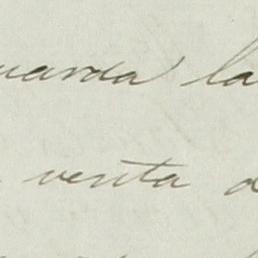 uarda la
venta d